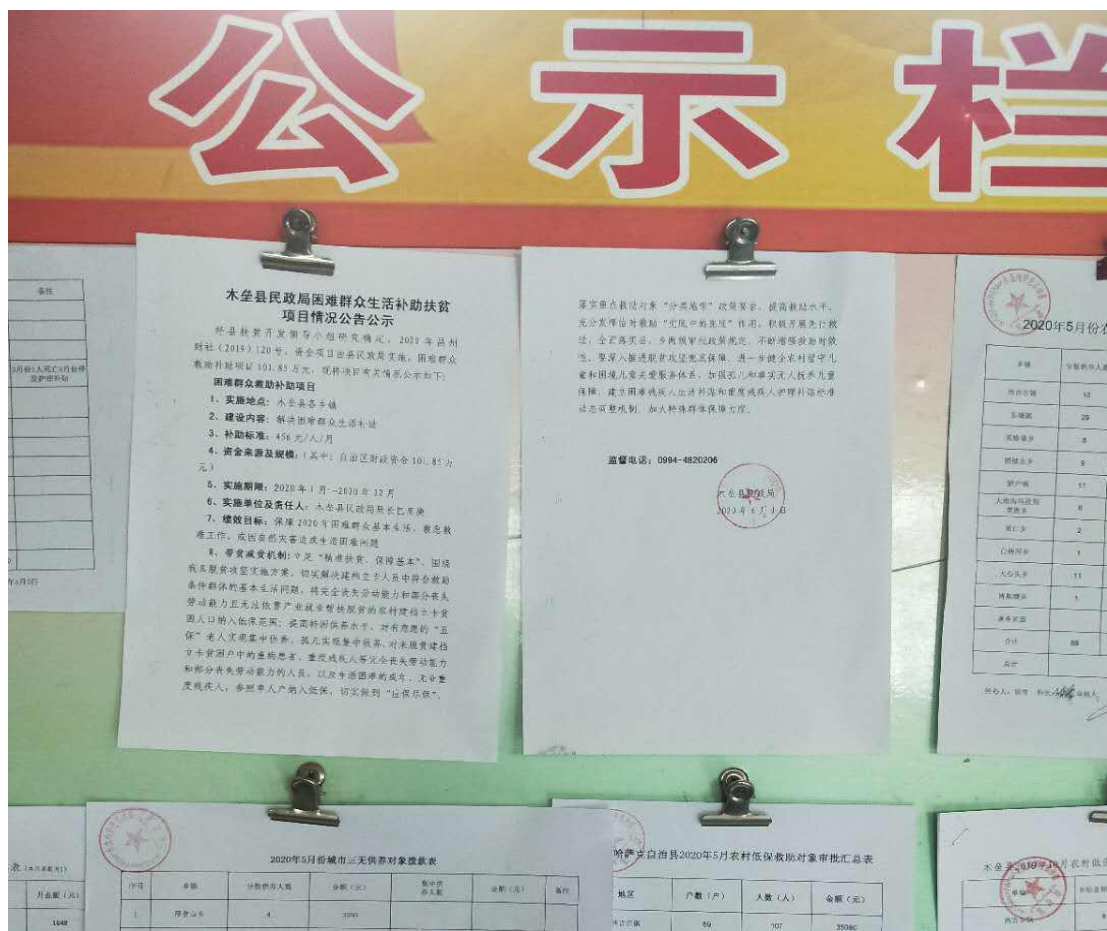 公示栏
木垒县民政局困难群众生活补助扶贫
项目情况公告公示
经县扶贫开发领导小组研究确定，2020年昌州
财社（2019）120号，资金项目由县民政局实施，困难群众
救助补助项目101.85万元，现将项目有关情况公示如下：
困难群众救助补助项目
1、实施地点：木垒县各乡镇
2、建设内容：解决困难群众生活补助
3、补助标准：456元/人/月
4、资金来源及规模：（其中：自治区财政资金101.85万
元）
5、实施期限：2020年1月-2020年12月
6、实施单位及责任人：木垒县民政局局长巴
7、绩效目标：保障2020年困难群众基本生活、救急救
难工作，或因自然灾害造成生活困难问题
8、带贫减贫机制：立足“精准扶贫、保障基本”，围绕
我县脱贫攻坚实施方案，切实解决建档立卡人员中符合救助
条件群体的基本生活问题，将完全丧失劳动能力和部分丧失
劳动能力且无法依靠产业就业帮扶脱贫的农村建档立卡贫
困人口纳入低保范围；提高特困供养水平，对有意愿的“五
保”老人实现集中供养、孤儿实现集中收养，对未脱贫建档
立卡贫困户中的重病患者、重度残疾人等完全丧失劳动能力
和部分丧失劳动能力的人员，以及生活困难的成年、无业重
度残疾人，参照单人户纳入低保，切实做到“应保尽保”，
落实重点救助对象“分类施策”政策要求，提高救助水平，
充分发挥临时救助“兜底中的兜底”作用，积极开展先行救
助，全面落实县、乡两级审批政策规定，不断增强救助时效
性。要深入推进脱贫攻坚兜底保障，进一步健全农村留守儿
童和困境儿童关爱服务体系，加强孤儿和事实无人抚养儿童
保障，建立困难残疾人生活补贴和重度残疾人护理补贴标准
动态调整机制，加大特殊群体保障力度。
监督电话：0994-4820206
木垒县民政局
2020年6月1日
备注
2020年5月份农
乡镇
分散供养人
西吉尔镇 10
东城镇 29
英格堡乡
照壁山乡 9
新户镇 11
大南沟乌孜别
克族乡 6
雀仁乡 2
白杨河乡 1
大石头乡 11
博斯塘乡 1
合计
总计
2020年5月份城市三无供养对象拨款表
序号 乡镇 分散供养人数 金额（元） 集中供
养人数 金额（元） 备注
1 照壁山乡 4
月金额（元）
1648
哈萨克自治县2020年5月农村低保救助对象审批汇总表
地区 户数（户） 人数（人） 金额（元）
西吉尔镇 59 107 35080
月农村低保
西吉尔镇